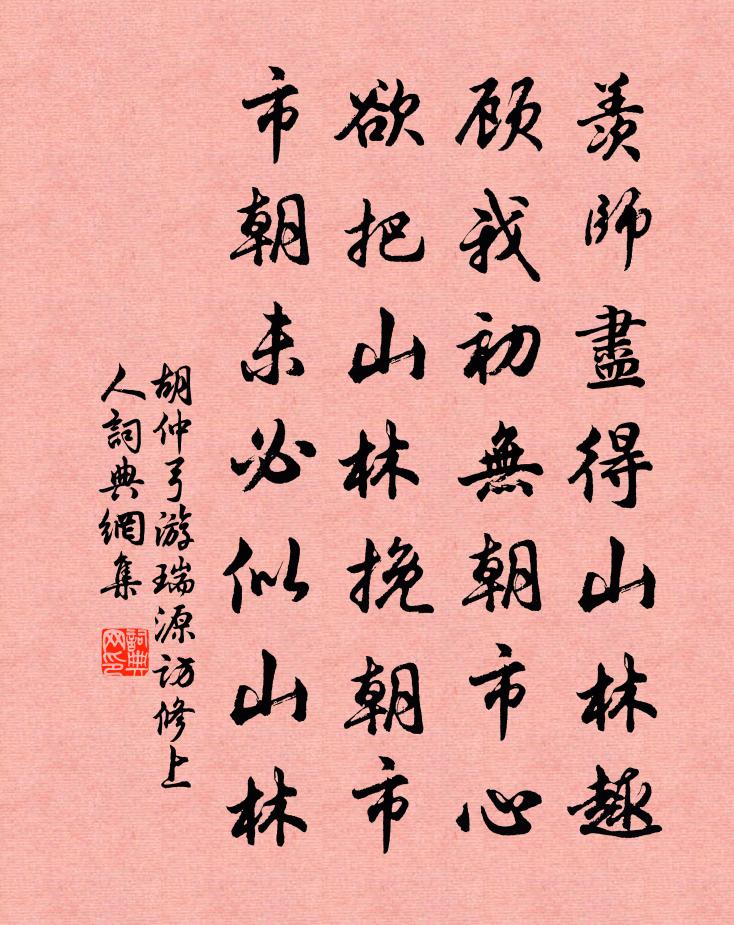 羨師盡得山林趣
顧我初無朝市心
欲把山林挽朝市
市朝未必似山林
胡仲弓游瑞源訪修上
人詞典網集
詞典
网印